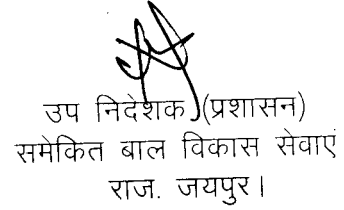 उप निदेशक (प्रशासन)
समेकित बाल विकास सेवाएं
राज. जयपुर।